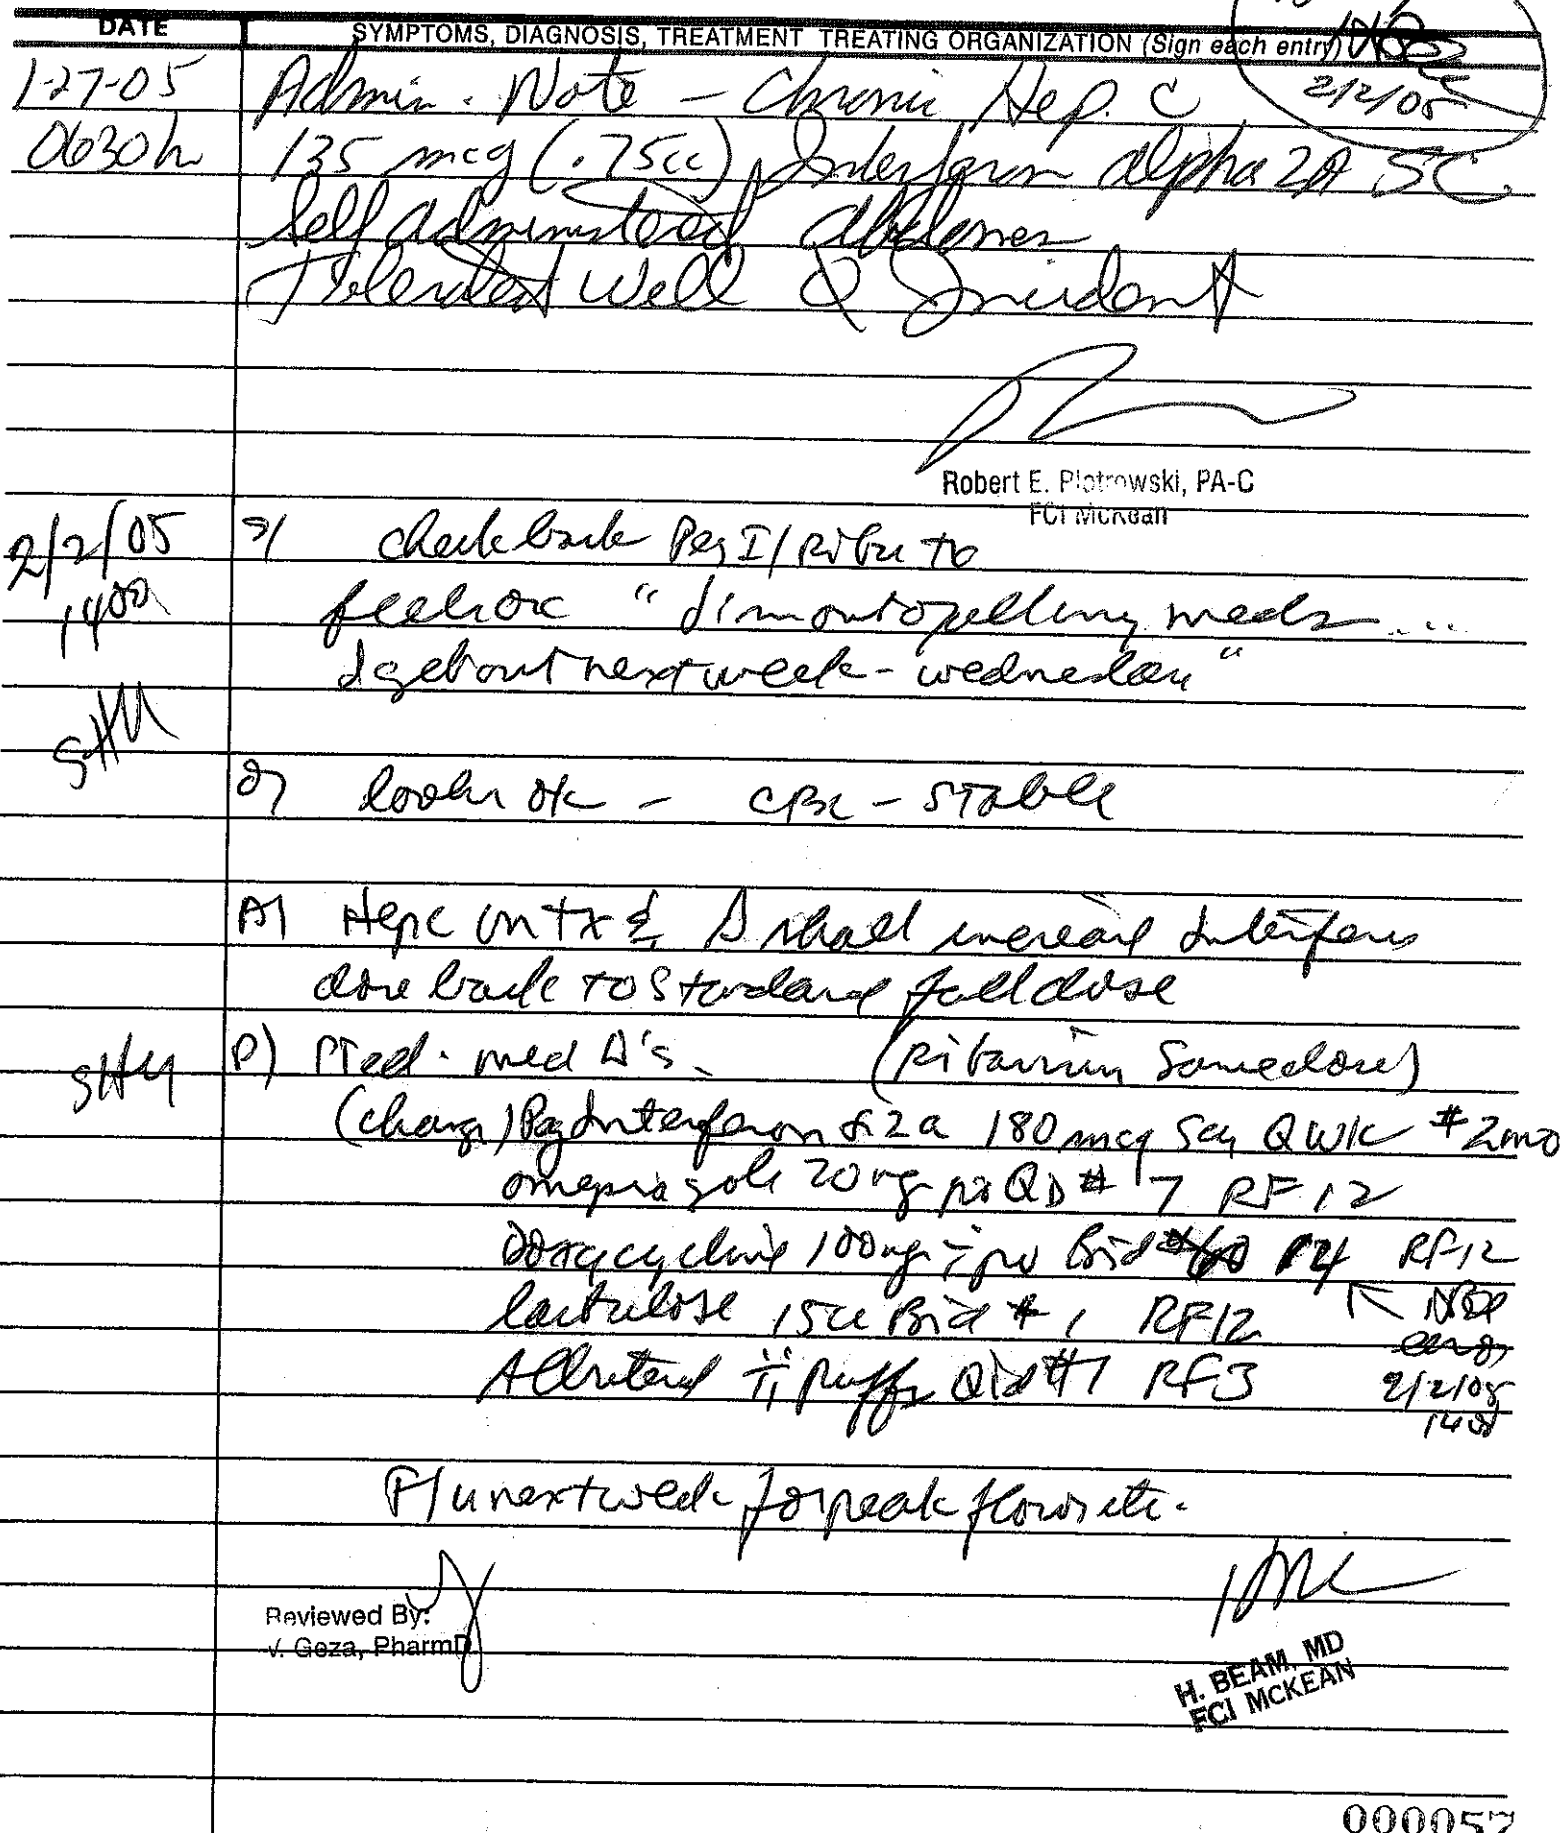 DATE SYMPTOMS, DIAGNOSIS, TREATMENT TREATING ORGANIZATION (Sign each entry)
2/2/05
1-27-05 Admin. Note - Chronic Hep. C
0630h 135 mcg (.75cc) Interferon alpha 2A SC.
Self administered abdomen
Tolerated well Incident
Robert E. Piotrowski, PA-C
FCI McKean
2/2/05 S/ check back Peg I/Riba to
1400 feels ok "
I get out next week - wednesday"
SHU
O/ looks ok - CBC - stable
A/ Hep C on tx Δ shall increase Interferon
dose back to standard full dose
SHU P) Pt ed. med Δ's. (Ribavirin same dose)
(change) Peg Interferon α 2a 180 mcg SCq QWK #2mo
omeprazole 20 mg po QD # 7 RF 12
doxycycline 100mg i po Bid 14 RF12
lactulose 15cc Bid # 1 RF12
error
Albuterol ii puffs Qid #1 RF3 2/2/05
1400
F/u next week for peak flows etc.
Reviewed By:
V. Geza, PharmD
H. BEAM, MD
FCI MCKEAN
000057